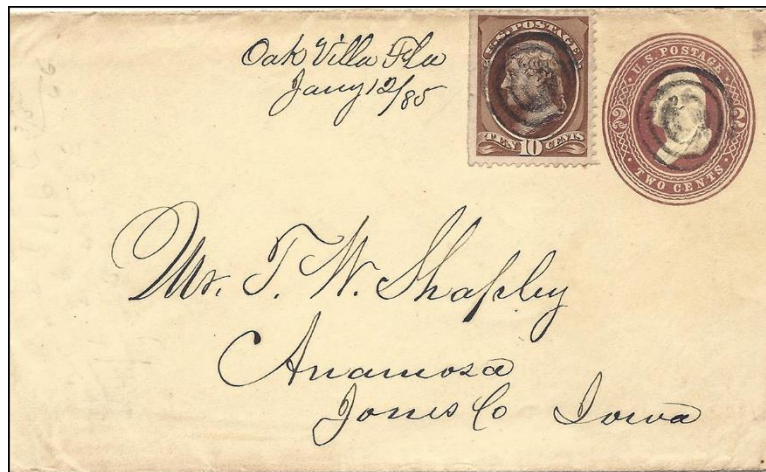 Oak Villa Fla
Jany 12/85
U.S. POSTAGE
TEN 10 CENTS
U.S. POSTAGE
2 2
TWO CENTS
Mr. T. W. Shapley
Anamosa
Jones Co Iowa